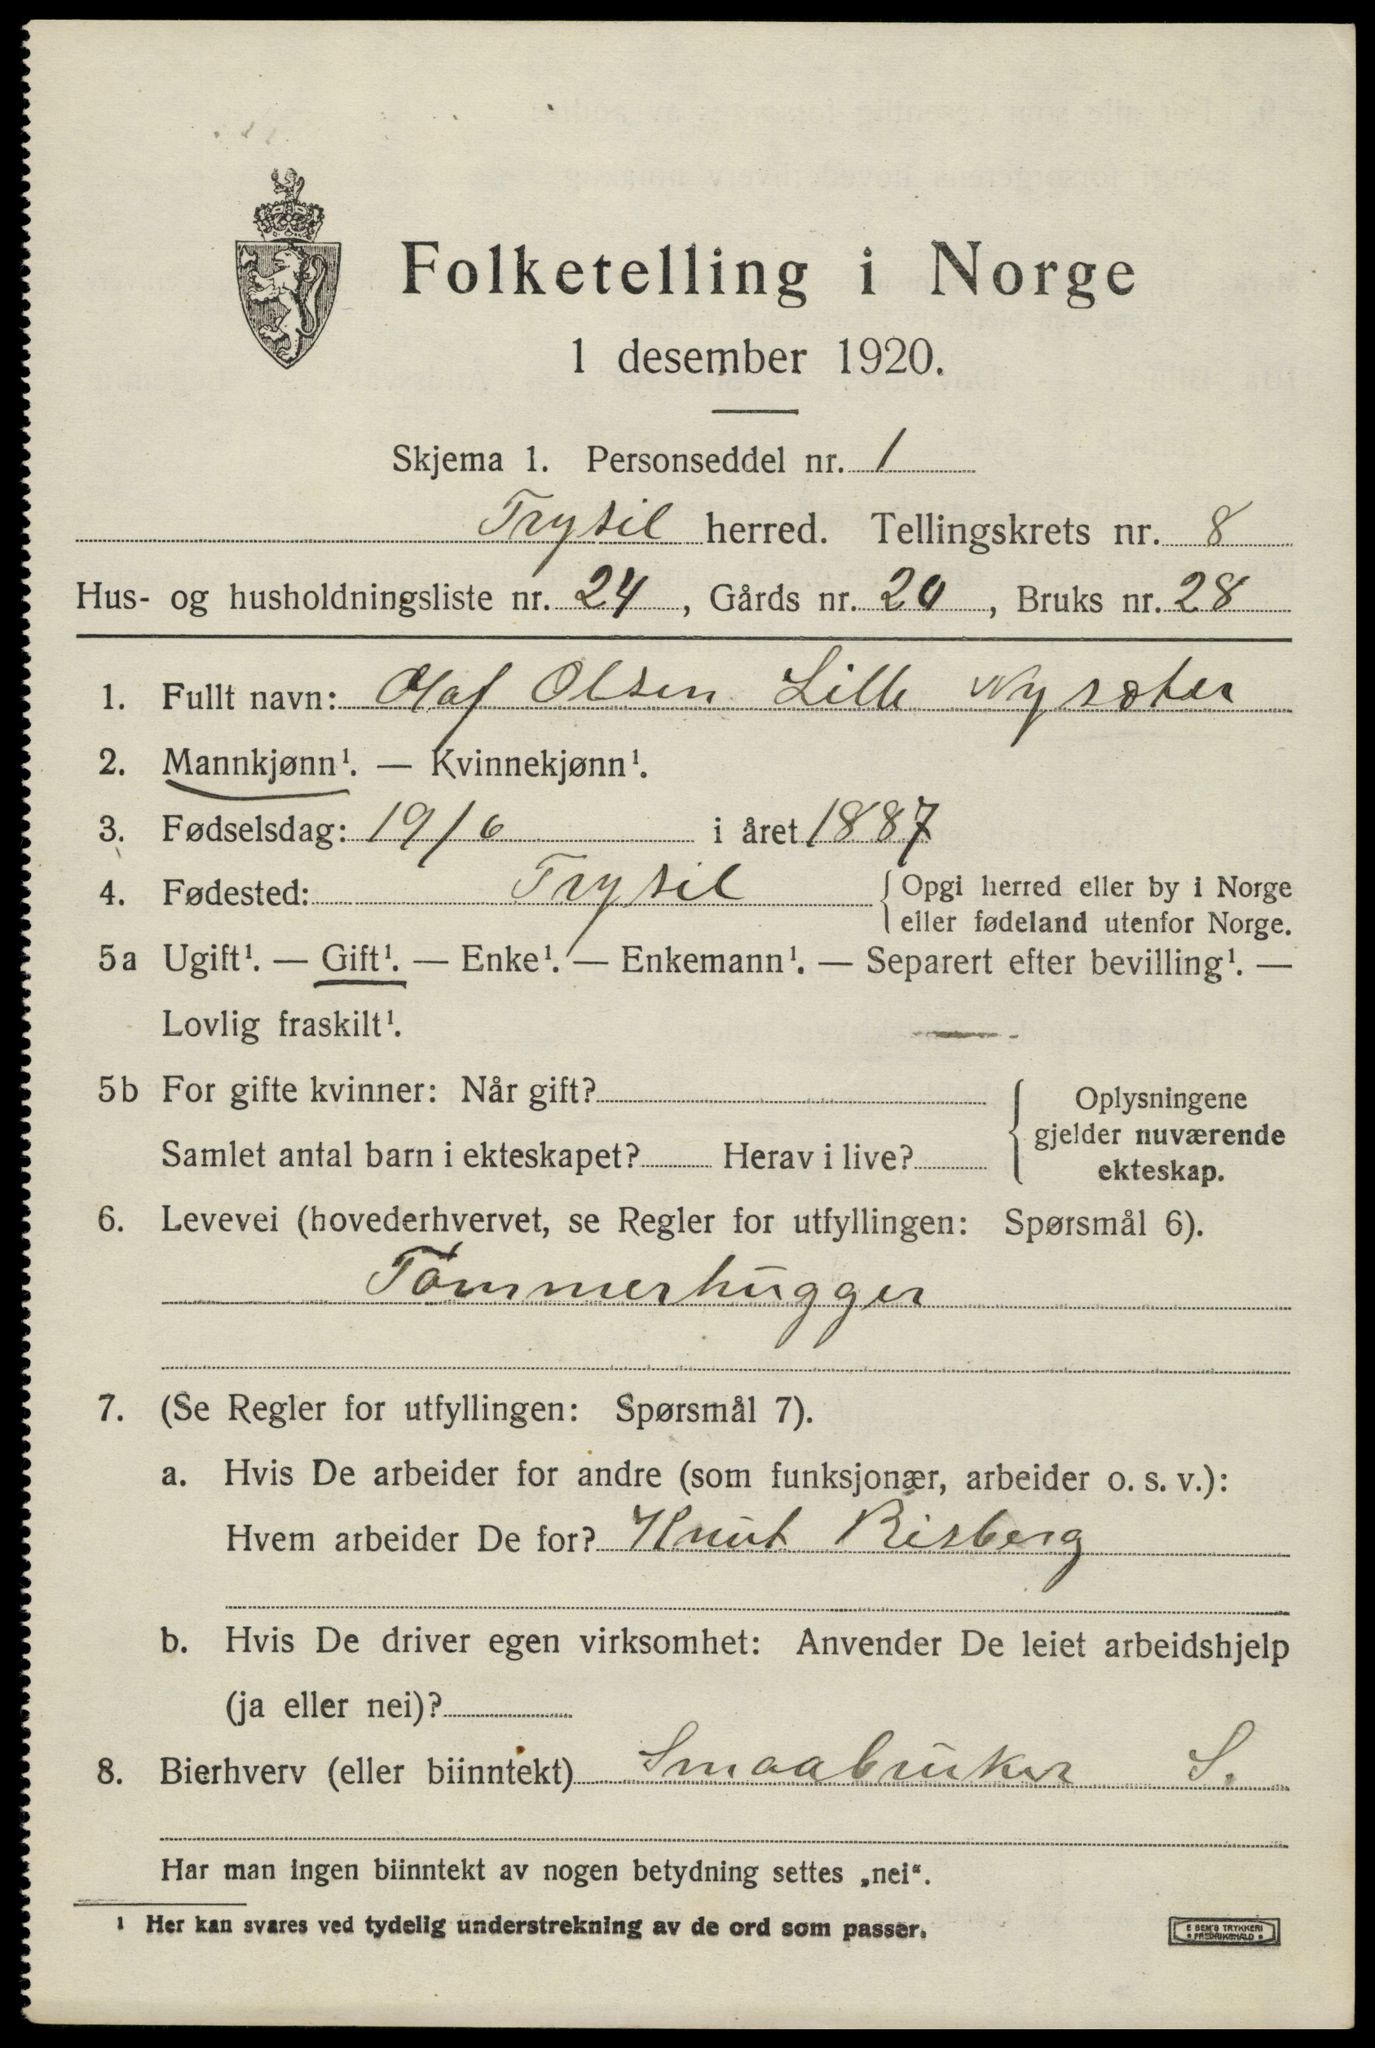 Folketelling i Norge
1 desember 1920.
Skjema 1. Personseddel nr. 1
Trysil herred. Tellingskrets nr. 8
Hus- og husholdningsliste nr. 24, Gårds nr. 20, Bruks nr. 28
1. Fullt navn: Olaf Olsen Lille Nysæter
2. Mannkjønn¹. — Kvinnekjønn¹.
3. Fødselsdag: 19/6 i året 1887
4. Fødested: Trysil {Opgi herred eller by i Norge
eller fødeland utenfor Norge.
5a Ugift¹. — Gift¹. — Enke¹. — Enkemann¹. — Separert efter bevilling¹. —
Lovlig fraskilt¹.
5b For gifte kvinner: Når gift?
Samlet antal barn i ekteskapet? Herav i live?
{ Oplysningene
gjelder nuværende
ekteskap.
6. Levevei (hovederhvervet, se Regler for utfyllingen: Spørsmål 6).
Tømmerhugger
7. (Se Regler for utfyllingen: Spørsmål 7).
a. Hvis De arbeider for andre (som funksjonær, arbeider o. s. v.):
Hvem arbeider De for? Knut Risberg
b. Hvis De driver egen virksomhet: Anvender De leiet arbeidshjelp
(ja eller nei)?
8. Bierhverv (eller biinntekt) Smaabruker S.
Har man ingen biinntekt av nogen betydning settes „nei“.
¹ Her kan svares ved tydelig understrekning av de ord som passer.
E SEM'S TRYKKERI
FREDRIKSHALD